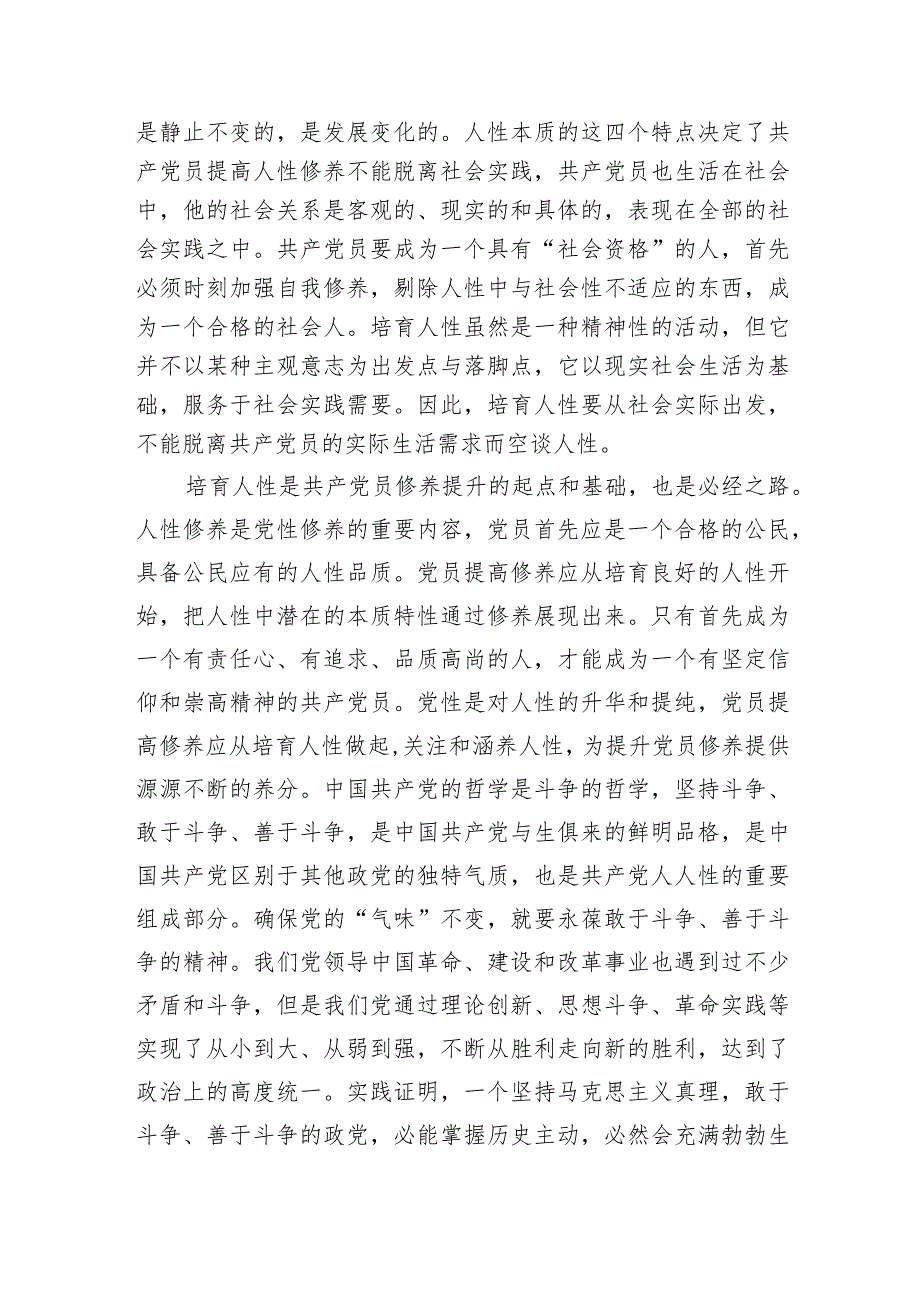 是静止不变的，是发展变化的。人性本质的这四个特点决定了共
产党员提高人性修养不能脱离社会实践，共产党员也生活在社会
中，他的社会关系是客观的、现实的和具体的，表现在全部的社
会实践之中。共产党员要成为一个具有“社会资格”的人，首先
必须时刻加强自我修养，剔除人性中与社会性不适应的东西，成
为一个合格的社会人。培育人性虽然是一种精神性的活动，但它
并不以某种主观意志为出发点与落脚点，它以现实社会生活为基
础，服务于社会实践需要。因此，培育人性要从社会实际出发，
不能脱离共产党员的实际生活需求而空谈人性。
培育人性是共产党员修养提升的起点和基础，也是必经之路。
人性修养是党性修养的重要内容，党员首先应是一个合格的公民，
具备公民应有的人性品质。党员提高修养应从培育良好的人性开
始，把人性中潜在的本质特性通过修养展现出来。只有首先成为
一个有责任心、有追求、品质高尚的人，才能成为一个有坚定信
仰和崇高精神的共产党员。党性是对人性的升华和提纯，党员提
高修养应从培育人性做起,关注和涵养人性，为提升党员修养提供
源源不断的养分。中国共产党的哲学是斗争的哲学，坚持斗争、
敢于斗争、善于斗争，是中国共产党与生俱来的鲜明品格，是中
国共产党区别于其他政党的独特气质，也是共产党人人性的重要
组成部分。确保党的“气味”不变，就要永葆敢于斗争、善于斗
争的精神。我们党领导中国革命、建设和改革事业也遇到过不少
矛盾和斗争，但是我们党通过理论创新、思想斗争、革命实践等
实现了从小到大、从弱到强，不断从胜利走向新的胜利，达到了
政治上的高度统一。实践证明，一个坚持马克思主义真理，敢于
斗争、善于斗争的政党，必能掌握历史主动，必然会充满勃勃生